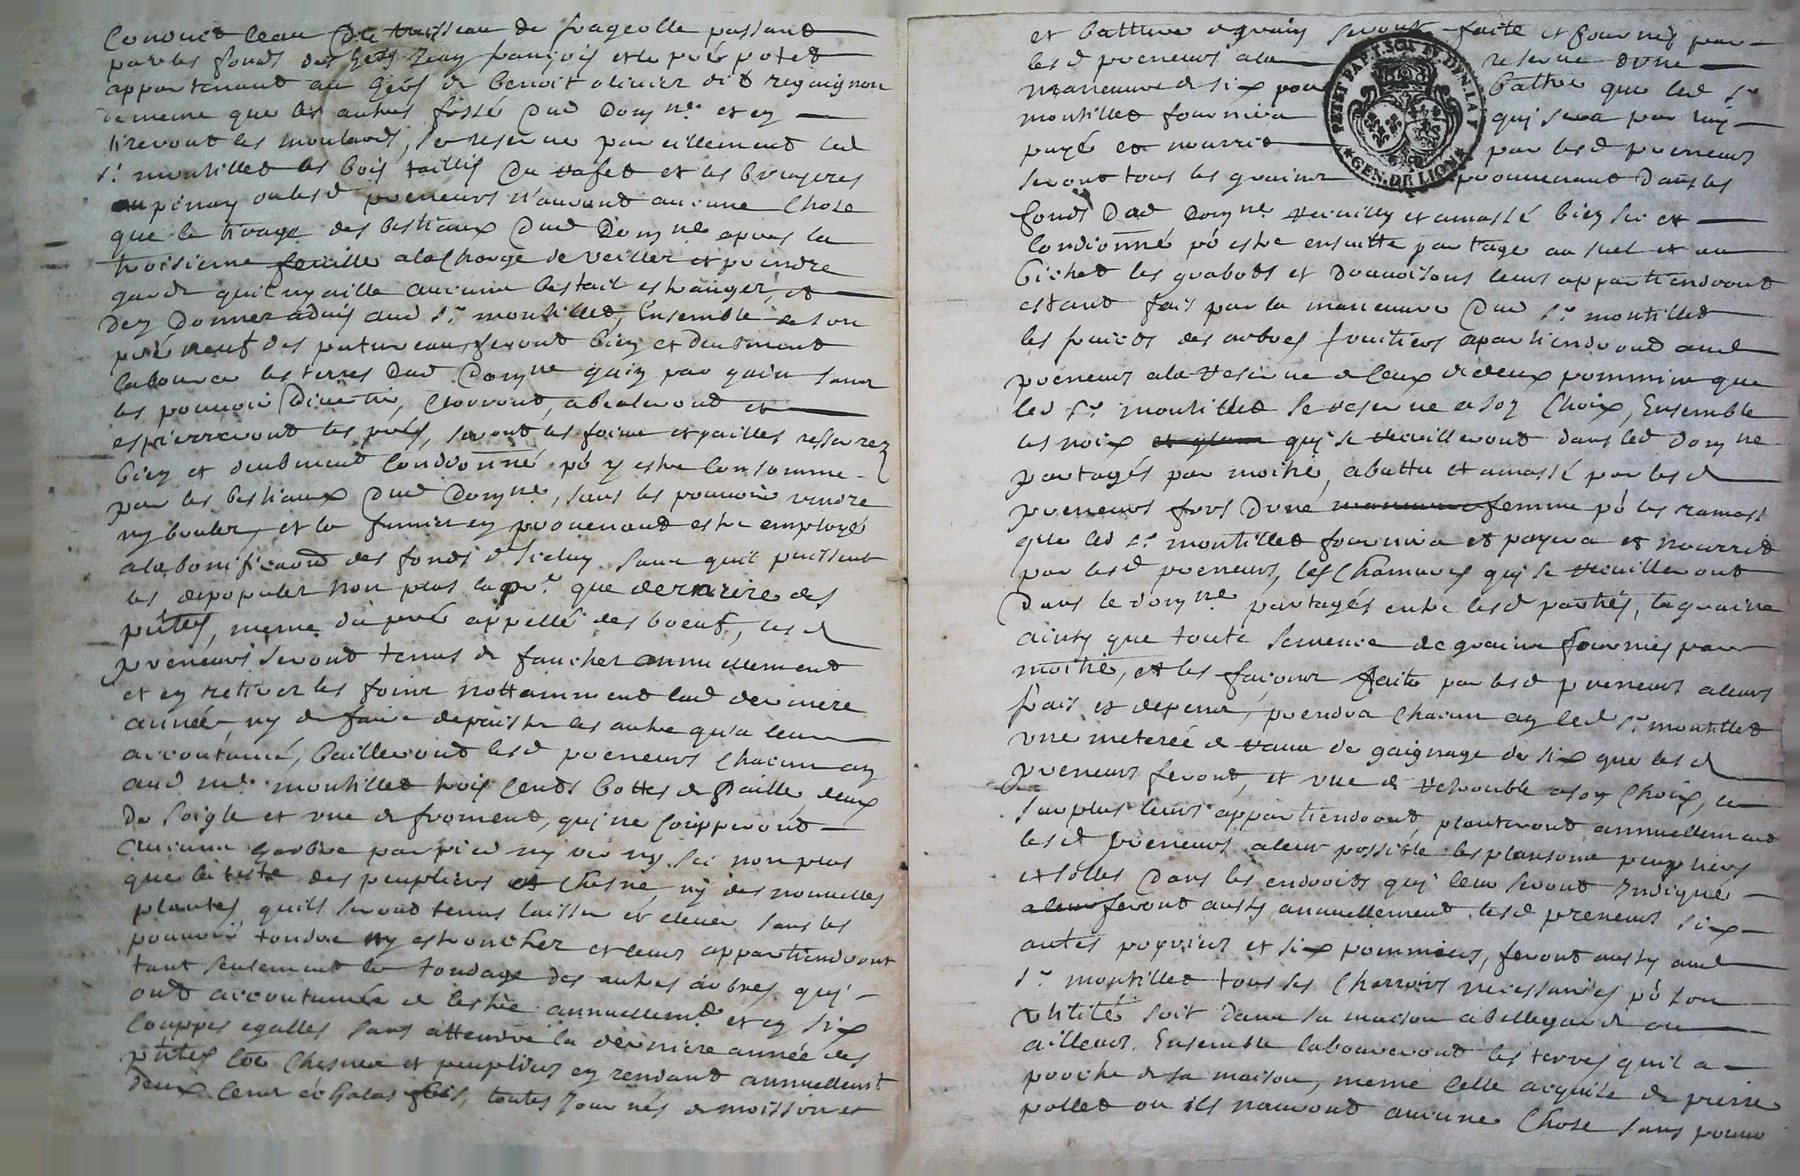 Conduit leau du ruisseau de frageolle passant
par les fonds des hers Jean françois et le pré potet
appartenant au hers de benoit olivier dit regaignon
de meme que les autres fossé dud domne et en
tireront les moulards, se reserve pareillement led
Sr montillet les bois taillis du et les bruyeres
ou lesd preneurs n'auront aucune chose
que le tirage des bestiaux dud domne apres la
troisieme feuille ala charge de veiller et prendre
garde quil ny aille aucuns bestail estranger, et
den donner advis aud Sr montillet, Ensemble de son
pré neuf des patureaux feront bien et deubment
labourer les terres dud domne gain par gain sans
les pouvoir divertir, clorront, abealeront et
espierreront les prés, seront les foins et pailles resserrez
bien et deubment conditionné pr y estre consommé
par les bestiaux dud domne, sans les pouvoir vendre
ny bruler, et le fumier en provenant estre employé
ala bonification des fonds d'Iceluy sans quil puissent
les depopuler non plus la pre que derniere des
pntes, meme du pré appellé des boeuf, lesd
preneurs seront tenus de faucher annuellement
et en retirer les foins nottamment lad derniere
année ny de faire depaistre les autre qu'a leur
accoutumé, bailleront lesd preneurs chacun an
aud mr montillet trois cents bottes de paille, deux
de soigle et une de froment, qui ne coupperont
aucuns arbre par pied ny vir ny sec non plus
que la teste des peupliers et chesne ny des nouvelles
plantes, quils seront tenus laisser et elever sans les
pouvoir tondre ny estroncher et leurs appartiendront
tant seulement le tondage des autres arbres qui
ont accoutumée de lestre annuellemt et en six
couppes egalles sans attendre la derniere année des
pntes chesnes et peupliers en rendant annuellemt
deux cent échalas, toutes journés de moisson et
et batture de grains seront faite et fournies par
lesd preneurs ala reserve dune
maneuvre de six pour battre que led Sr
montillet fournira qui sera par luy
payé et nourrit par lesd preneurs
seront tous les grains provenant dans les
fonds dud domne recuilly et amassé bien sec et
conditionné pr estre ensuitte partage au suel et au
bichet les grabots et leurs appartiendront
estant fais par la maneuvre dud Sr montillet
les fruicts des arbres fruitiers apartiendront aud
preneurs ala reserve de ceux de deux pommier que
led Sr montillet se reserve a son choix, Ensemble
les noix qui se recuilleront dans led domne
partagés par moitié, abattu et amassé par lesd
preneurs fors dune femme pr les ramass
que led Sr montillet fournira et payera et nourrit
par lesd preneurs, les chanvres qui se recuilleront
dans le domne partagés entre lesd parties, la graine
ainsy que toute semence de grains fournies par
moitié, et les façons faite par lesd preneurs a leurs
frais et depens, prendra chacun an led Sr montillet
une meterée de raue de gaignage de six que lesd
preneurs feront, et une de retrouble a son choix, le
surplus leurs appartiendront, planteront annuellement
lesd preneurs a leur possible les plansons peupliers
et solles dans les endroits qui leur seront Indiqué
feront aussy annuellement lesd preneurs six
antes poyriers et six pommiers, feront aussy aud
Sr montillet tous ses charrois necessaires pr son
utilité soit dans sa maison abellegarde ou
ailleurs. Ensemble laboureront les terres quil a
proche de sa maison, meme celle acquise de pierre
pollet ou ils nauront aucune chose sans pouvo
PETIT PAP. F. SOLS DEN. LA F
GEN. DE LION